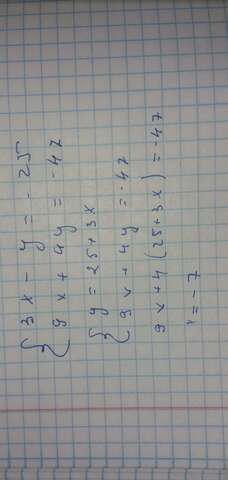 3x - y = - 25
9x + 4y = - 47
y = 25+3x
9x + 4y = -47
9x+4(25+3x) = -47
x = -7